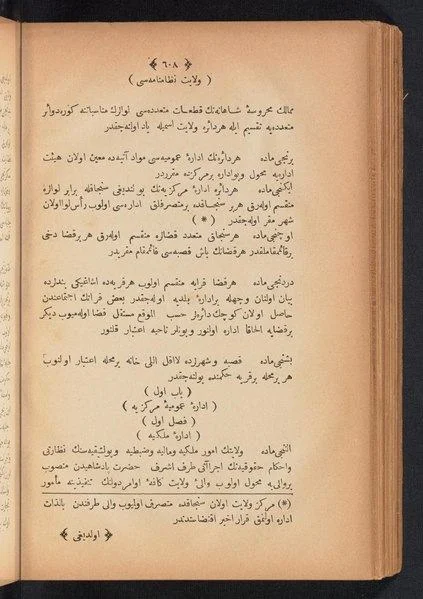 ﴿ ٦٠٨ ﴾
( ولايت نظامنامه سى )
ممالك محروسهٔ شاهانه نك قطعات متعدده سى لوازك مناسباتنه كوره دوائر
متعدده يه تقسيم ايله هر دائره ولايت اسميله ياد اولنه جقدر
برنجى ماده هر دائره نك ادارهٔ عموميه سى مواد آتيه ده معين اولان هيئت
اداريه يه محول وبو اداره بر مركزده مقرردر
ايكنجى ماده هر دائره ادارهٔ مركزيه نك بولنديغى سنجاقله برابر لوازه
منقسم اوله رق هر بر سنجاقده بر متصرفلق اداره سى اولوب رأس لوا اولان
شهر مقر اوله جقدر ( * )
اوچنجى ماده هر سنجاق متعدد قضالره منقسم اوله رق هر قضا دخى
بر قائممقاملقدر هر قضانك باش قصبه سى قائممقام مقريدر
دردنجى ماده هر قضا قرايه منقسم اولوب هر قريه ده اشاغيكى بندلرده
بيان اولنان وجهله بر ادارهٔ بلديه اوله جقدر بعض قرانك اجتماعندن
حاصل اولان كوچك دائره لر حسب الموقع مستقل قضا اوله ميوب ديكر
بر قضايه الحاقا اداره اولنور وبونلر ناحيه اعتبار قلنور
بشنجى ماده قصبه و شهرلرده لااقل اللى خانه بر محله اعتبار اولنوب
هر بر محله بر قريه حكمنده بولنه جقدر
( باب اول )
( ادارهٔ عموميهٔ مركزيه )
( فصل اول )
( ادارهٔ ملكيه )
التنجى ماده ولايتك امور ملكيه وماليه وضبطيه وپولتيقه سنك نظارتى
واحكام حقوقيه نك اجراآتى طرف اشرف حضرت پادشاهيدن منصوب
بر والى يه محول اولوب والئ ولايت كافهٔ اوامر دولتك تنفيذينه مأمور
(*) مركز ولايت اولان سنجاقده متصرف اوليوب والى طرفندن بالذات
اداره اولنمق قرار اخير اقتضاسندندر
﴿ اولديغى ﴾